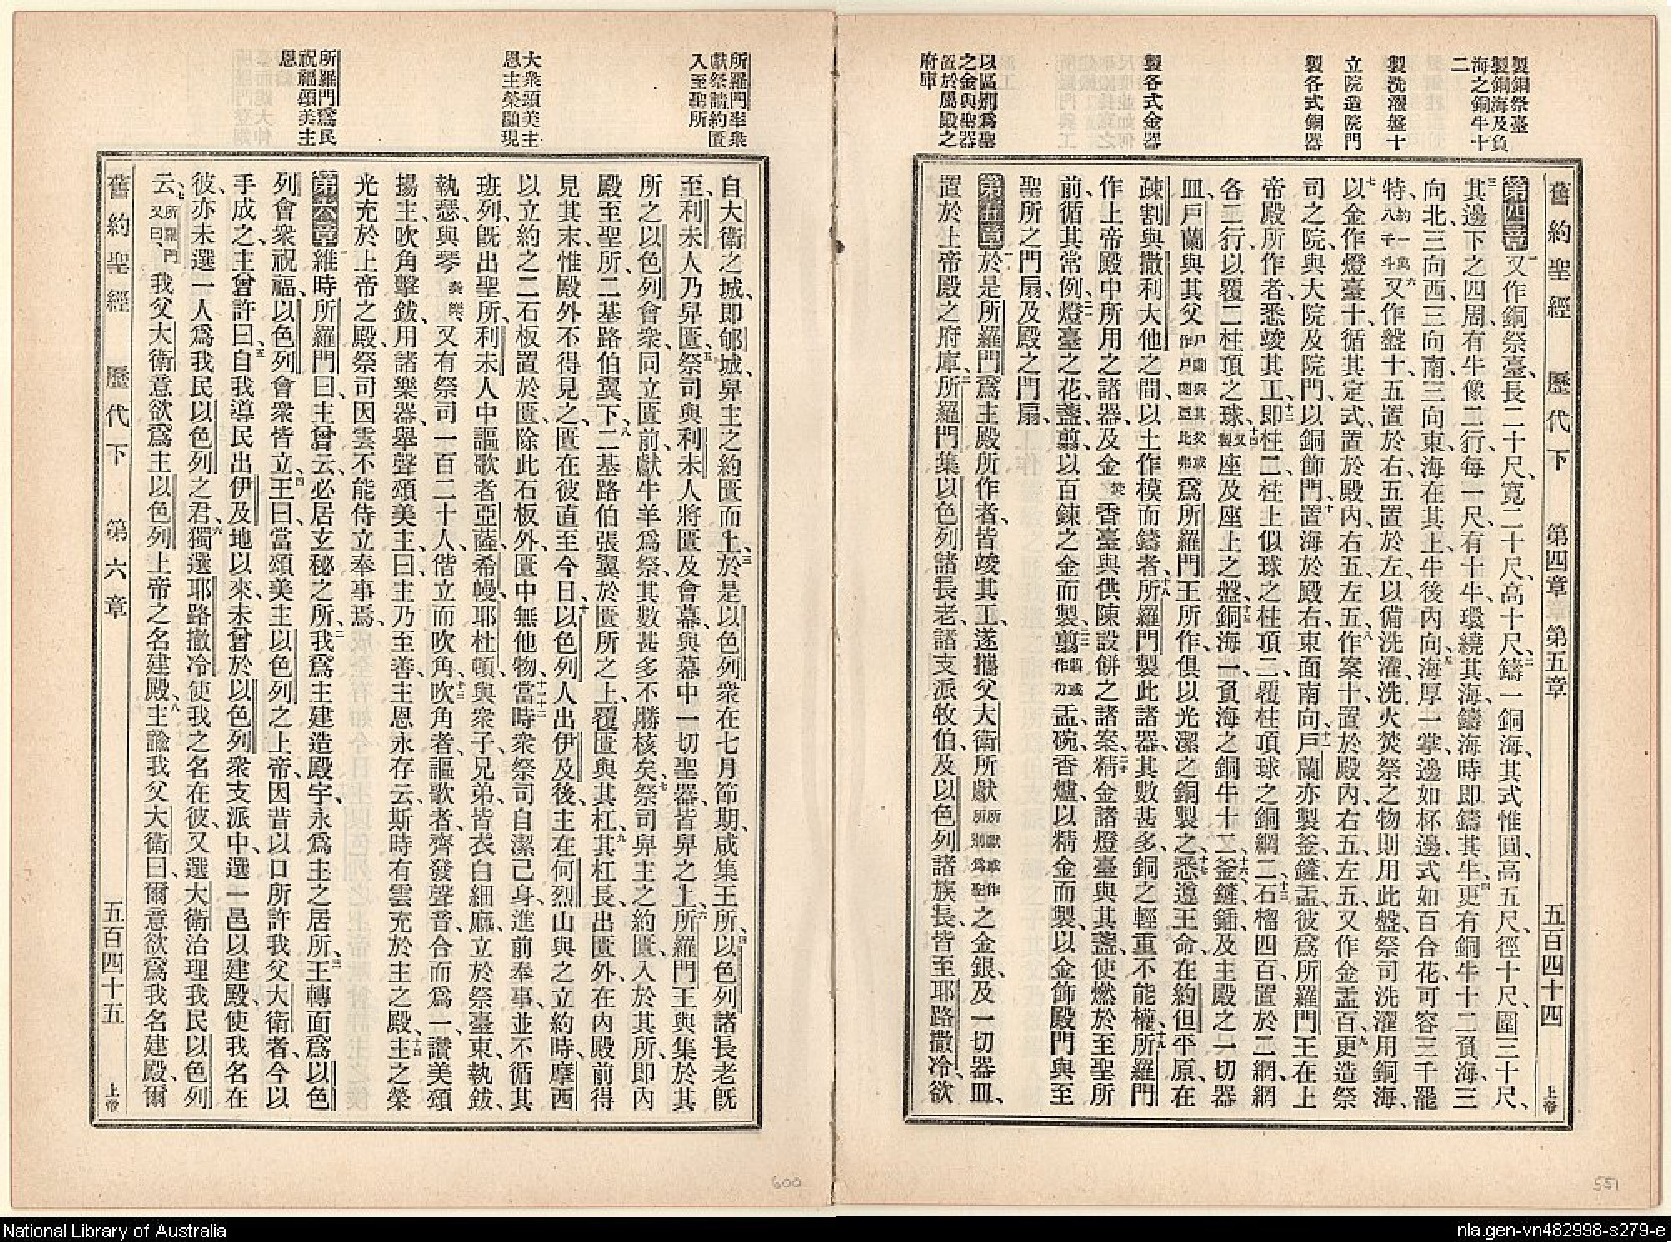 製銅祭臺
製銅海及負
海之銅牛十
二
製洗濯盤十
立院造院門
製各式銅器
製各式金器
以區別爲聖
之金與聖器
置於屬殿之
府庫
舊約聖經 歷代下 第四章 第五章 五百四十四 上帝
第四章一又作銅祭臺、長二十尺、寬二十尺、高十尺、二鑄一銅海、其式惟圓、高五尺、徑十尺、圍三十尺、
三其邊下之四周有牛像二行、每一尺有十牛、環繞其海、鑄海時即鑄其牛、四更有銅牛十二負海、三
向北、三向西、三向南、三向東、海在其上、牛後內向、五海厚一掌、邊如杯邊、式如百合花、可容三千罷
特、約一萬八千斗六又作盤十、五置於右、五置於左、以備洗濯、洗火焚祭之物、則用此盤、祭司洗濯、用銅海、
七以金作燈臺十、循其定式、置於殿內、右五左五、八作案十、置於殿內、右五左五、又作金盂百、九更造祭
司之院、與大院及院門、以銅飾門、十置海於殿右、東面南向、十一戶蘭亦製釜鏟盂、彼爲所羅門王在上
帝殿所作者、悉竣其工、十二即柱二、柱上似球之柱頂二、覆柱頂球之銅網二、十三石榴四百、置於二網、網
各二行、以覆二柱頂之球、十四又製座及座上之盤、十五銅海一、負海之銅牛十二、十六釜鏟鍤及主殿之一切器
皿、戶蘭與其父 戶蘭與其父或作戶蘭亞比弗 爲所羅門王所作、俱以光潔之銅製之、十七悉遵王命、在約但平原、在
疎割與撒利大他之間、以土作模而鑄者、十八所羅門製此諸器、其數甚多、銅之輕重不能權、十九所羅門
作上帝殿中所用之諸器、及金香臺、與供陳設餅之諸案、二十精金諸燈臺與其盞、使燃於至聖所
前、循其常例、二一燈臺之花、盞、剪、以百鍊之金而製、二二剪 盂、碗、香爐、以精金而製、以金飾殿門、與至
聖所之門扇、及殿之門扇、
第五章一於是所羅門爲主殿所作者、皆竣其工、遂攜父大衛所獻 所獻或作所別爲聖 之金銀、及一切器皿、
置於上帝殿之府庫、二所羅門集以色列諸長老、諸支派牧伯、及以色列諸族長、皆至耶路撒冷、欲
所羅門率衆
獻祭攜約匱
入至聖所
大衆頌美主
恩主榮顯現
所羅門爲民
祝福頌美主
恩
自大衛之城、即郇城、舁主之約匱而上、三於是以色列衆、在七月節期、咸集王所、四以色列諸長老既
至、利未人乃舁匱、五祭司與利未人、將匱及會幕、與幕中一切聖器、皆舁之上、六所羅門王與集於其
所之以色列會衆、同立匱前、獻牛羊爲祭、其數甚多、不勝核矣、七祭司舁主之約匱、入於其所、即內
殿至聖所、二基路伯翼下、八二基路伯張翼於匱所之上、覆匱與其杠、九其杠長、出匱外、在內殿前得
見其末、惟殿外不得見之、匱在彼直至今日、十以色列人出伊及後、主在何烈山與之立約時、摩西
以立約之二石板置於匱、除此石板外、匱中無他物、十一當時衆祭司自潔己身、進前奉事、並不循其
班列、既出聖所、利未人中謳歌者、亞薩、希幔、耶杜頓、與衆子兄弟、皆衣白細麻、立於祭臺東、執鈸、
執瑟、與琴奏樂、又有祭司一百二十人偕立而吹角、十三吹角者、謳歌者、齊發聲音、合而爲一、讚美頌
揚主、吹角擊鈸、用諸樂器、舉聲頌美主曰、主乃至善、主恩永存、云斯時有雲充於主之殿、十四主之榮
光充於上帝之殿、祭司因雲不能侍立奉事焉、
第六章一維時所羅門曰、主曾云、必居玄秘之所、二我爲主建造殿宇、永爲主之居所、三王轉面爲以色
列會衆祝福、以色列會衆皆立、四王曰、當頌美主以色列之上帝、因昔以口所許我父大衛者、今以
手成之、主曾許曰、五自我導民出伊及地以來、未曾於以色列衆支派中、選一邑以建殿、使我名在
彼、亦未選一人爲我民以色列之君、六獨選耶路撒冷使我之名在彼、又選大衛治理我民以色列
云、七所羅門又曰、我父大衛意欲爲主以色列上帝之名建殿、八主諭我父大衛曰、爾意欲爲我名建殿、爾
舊約聖經 歷代下 第六章 五百四十五 上帝
600
551
National Library of Australia
nla.gen-vn482998-s279-e